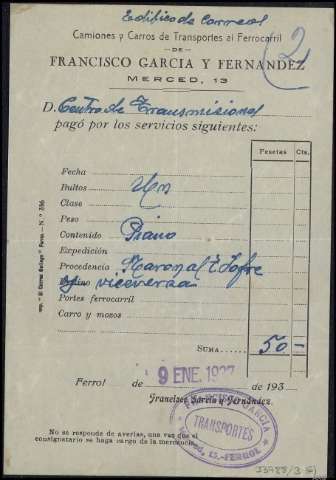 Edificio de Correos
2
Camiones y Carros de Transportes al Ferrocarril
— DE —
FRANCISCO GARCIA Y FERNANDEZ
MERCED, 13
D. Centro de Transmisional
pagó por los servicios siguientes:
Pesetas Cts.
Fecha
Bultos Un
Clase
Peso
Contenido Piano
Expedición
Procedencia
y viceversa
Portes ferrocarril
Carro y mozos
SUMA 50 -
Ferrol de 9 ENE. 1937 de 193
Francisco García y Fernández.
FRANCISCO GARCIA
TRANSPORTES
Merced, 13.-FERROL
No se responde de averías, una vez que el
consignatario se haga cargo de la mercancía.
Imp. "El Correo Gallego" Ferrol - N.º 386